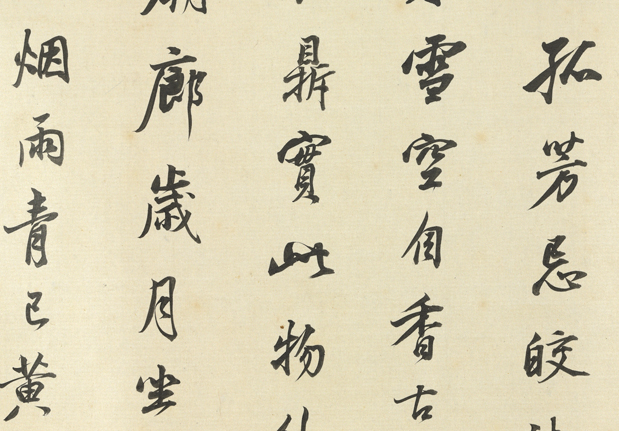 孤芳忌皎
雪空自香古
鼎實此物
廊歲月坐
烟雨青已黄